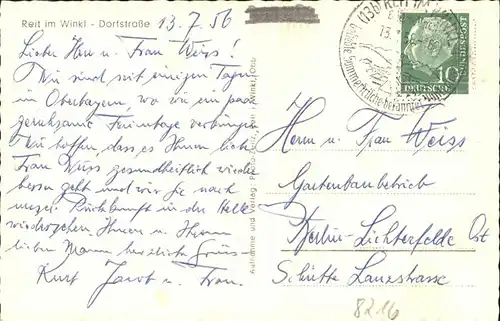 Reit im Winkl - Dorfstraße
13.7.56
Liebe Herr u. Frau Weiss!
Wir sind seit einigen Tagen
in Oberbayern, wo wir ein paar
geruhsame Ferientage verbringen
Wir hoffen, dass es Ihnen liebe
Frau Weiss gesundheitlich wieder
besser geht und wir Sie nach
unserer Rückkunft in der Halle
wiedersehen. Ihnen u. Ihrem
lieben Mann herzliche Grüs-
Kurt Jacob u. Frau.
Aufnahme und Verlag: Winkl/Obb
(13b) REIT IM WINKL
13.
10
DEUTSCHE BUNDESPOST
Herrn u. Frau Weiss
Gartenbaubetrieb
Berlin-Lichterfelde Ost
Schütte Lanzstrasse
8216